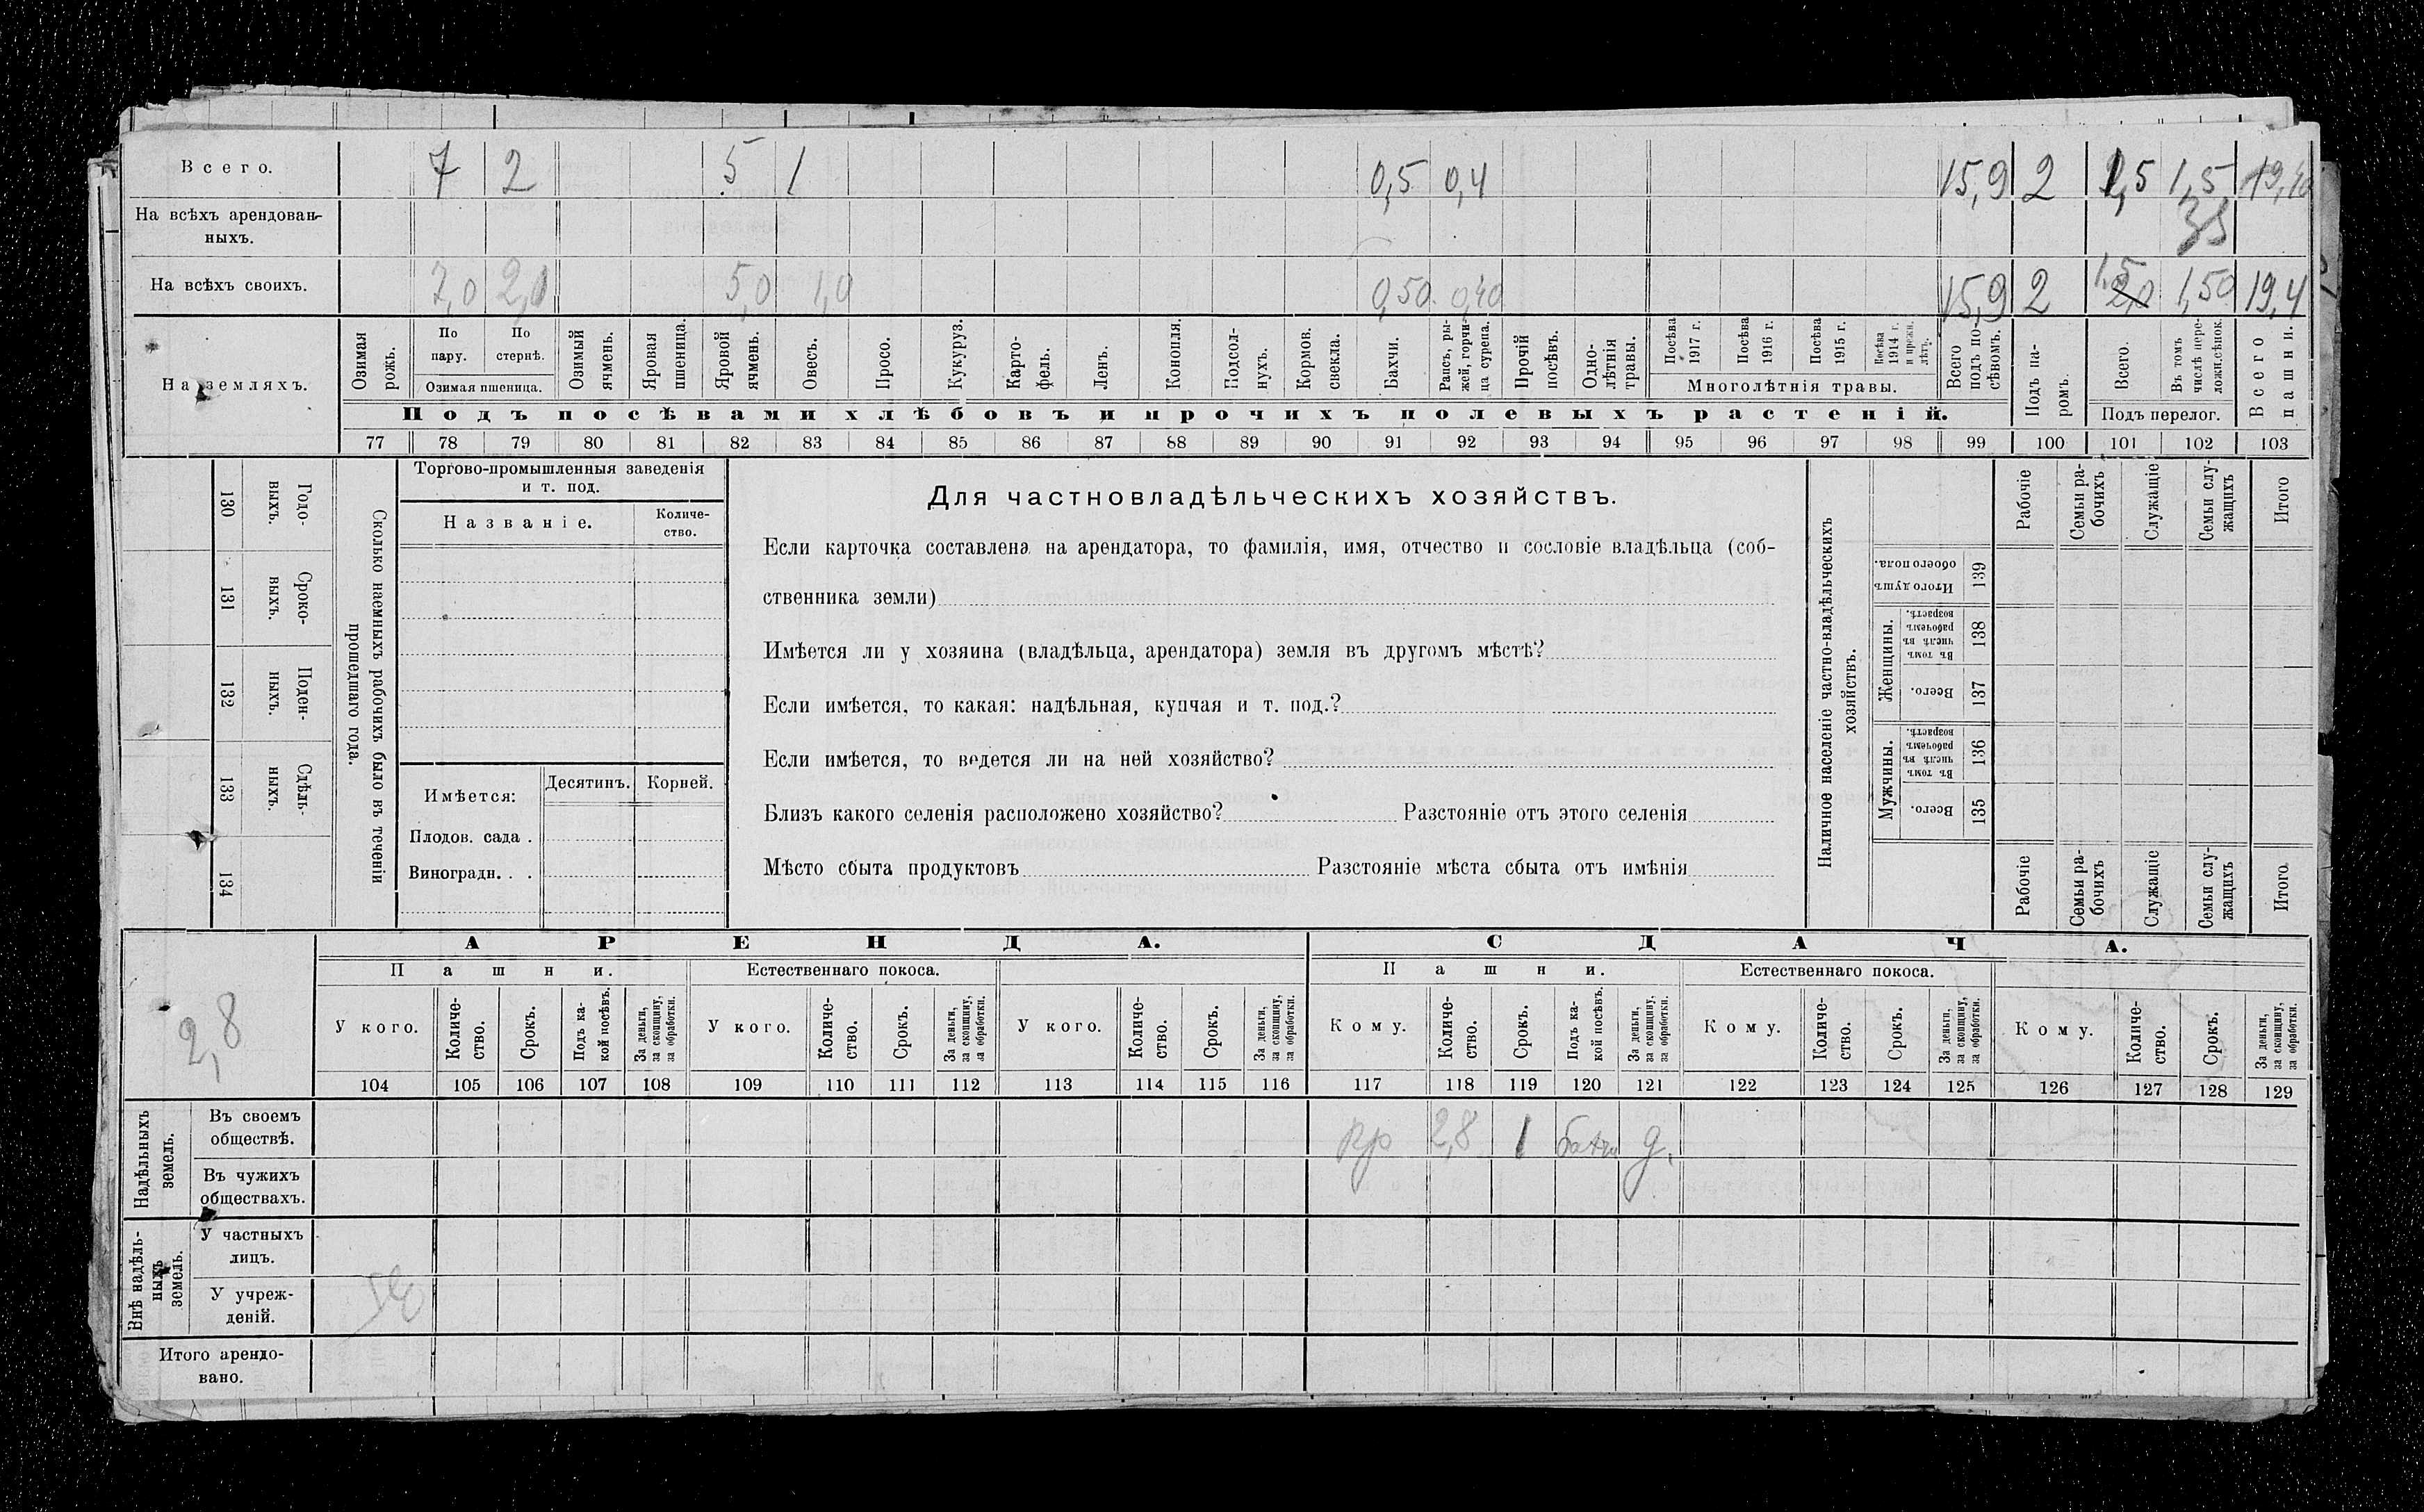 Всего. 7 2 5 1 0,5 0,4 15,9 2 1,5 1,5 19,40
На всѣхъ арендован-
ныхъ. 35
На всѣхъ своихъ. 7,0 2,0 5,0 1,0 0,50 0,40 15,9 2 1,5 2,0 1,50 19,4
На земляхъ.
Озимая рожь.
По пару.
По стернѣ.
Озимая пшеница.
Озимый ячмень.
Яровая пшеница.
Яровой ячмень.
Овесъ.
Просо.
Кукуруз.
Карто-
фель.
Ленъ.
Конопля.
Подсол-
нухъ.
Кормов. свекла.
Бахчи.
Рапсъ, ры-
жей, горчи-
ца сурепа.
Прочій посѣвъ.
Одно-
лѣтнія травы.
Посѣва 1917 г.
Посѣва 1916 г.
Посѣва 1915 г.
Посѣва 1914 г. и прежн. лѣтъ.
Многолѣтнія травы.
Всего подъ по-
сѣвомъ.
Подъ па-
ромъ.
Всего.
Въ томъ числѣ пере-
ложн.сѣнок.
Подъ перелог.
Всего пашни.
Подъ посѣвами хлѣбовъ и прочихъ полевыхъ растеній.
77 78 79 80 81 82 83 84 85 86 87 88 89 90 91 92 93 94 95 96 97 98 99 100 101 102 103
130 Годо-
выхъ.
131 Сроко-
выхъ.
132 Поден-
ныхъ.
133 Сдѣль-
ныхъ.
134
Сколько наемныхъ рабочихъ было въ теченіи
прошедшаго года.
Торгово-промышленныя заведенія
и т. под.
Названіе.
Количе-
ство.
Имѣется:
Десятинъ.
Корней.
Плодов. сада .
Виноградн. . .
Для частновладѣльческихъ хозяйствъ.
Если карточка составлена на арендатора, то фамилія, имя, отчество и сословіе владѣльца (соб-
ственника земли)
Имѣется ли у хозяина (владѣльца, арендатора) земля въ другомъ мѣстѣ?
Если имѣется, то какая: надѣльная, купчая и т. под.?
Если имѣется, то ведется ли на ней хозяйство?
Близъ какого селенія расположено хозяйство? Разстояніе отъ этого селенія
Мѣсто сбыта продуктовъ Разстояніе мѣста сбыта отъ имѣнія
Наличное населеніе частно-владѣльческихъ
хозяйствъ.
Рабочіе
Семьи ра-
бочихъ
Служащіе
Семьи слу-
жащихъ
Итого
Итого душъ обоего пола. 139
Женщины.
Въ томъ числѣ въ рабочемъ возрастѣ. 138
Всего. 137
Мужчины.
Въ томъ числѣ въ рабочемъ возрастѣ. 136
Всего. 135
Рабочіе
Семьи ра-
бочихъ
Служащіе
Семьи слу-
жащихъ
Итого.
2,8
АРЕНДА. СДАЧА.
Пашни. Естественнаго покоса. Пашни. Естественнаго покоса.
У кого.
Количе-
ство.
Срокъ.
Подъ ка-
кой посѣвъ.
За деньги, за скопщину, за обработки.
У кого.
Количе-
ство.
Срокъ.
За деньги, за скопщину, за обработки.
У кого.
Количе-
ство.
Срокъ.
За деньги, за скопщину, за обработки.
Кому.
Количе-
ство.
Срокъ.
Подъ ка-
кой посѣвъ.
За деньги, за скопщину, за обработки.
Кому.
Количе-
ство.
Срокъ.
За деньги, за скопщину, за обработки.
Кому.
Количе-
ство.
Срокъ.
За деньги, за скопщину, за обработки.
104 105 106 107 108 109 110 111 112 113 114 115 116 117 118 119 120 121 122 123 124 125 126 127 128 129
Надѣльныхъ
земель.
Въ своемъ
обществѣ. 2,8 1 д.
Въ чужихъ
обществахъ.
Внѣ надѣль-
ныхъ
земель.
У частныхъ
лицъ.
У учреж-
деній.
Итого арендо-
вано.